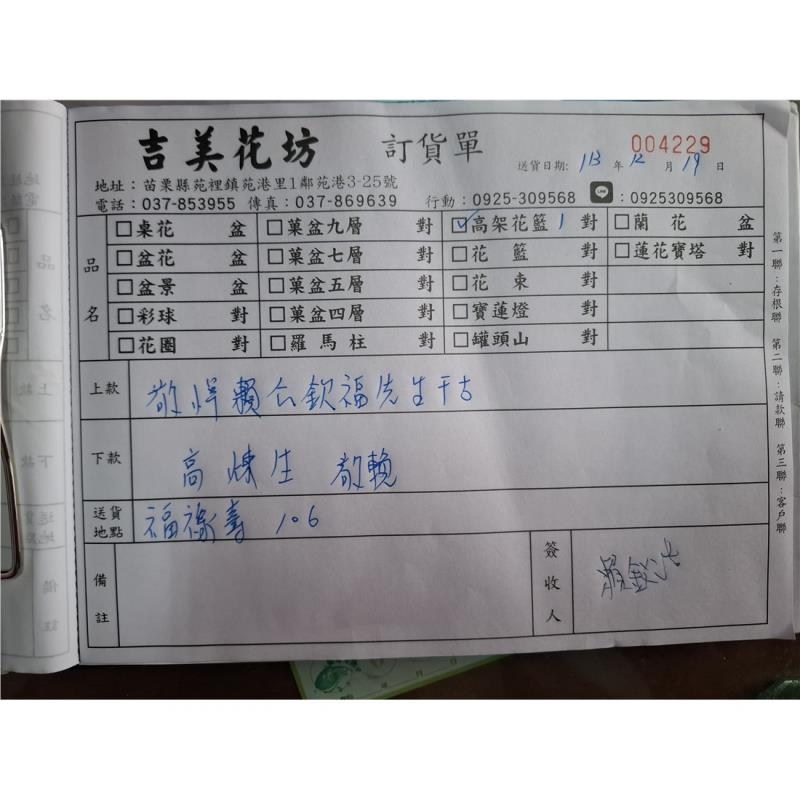 吉美花坊 訂貨單 004229
送貨日期: 113 年 12 月 19 日
地址：苗栗縣苑裡鎮苑港里1鄰苑港3-25號
電話：037-853955 傳真：037-869639 行動：0925-309568 LINE：0925309568
品名
☐桌花 盆 ☐菓盆九層 對 ☑高架花籃 1 對 ☐蘭花 盆
☐盆花 盆 ☐菓盆七層 對 ☐花籃 對 ☐蓮花寶塔 對
☐盆景 盆 ☐菓盆五層 對 ☐花束 對
☐彩球 對 ☐菓盆四層 對 ☐寶蓮燈 對
☐花圈 對 ☐羅馬柱 對 ☐罐頭山 對
上款 敬悼賴公欽福先生千古
下款 高煉生 敬輓
送貨地點 福祿壽 106
備註
簽收人 賴欽
第一聯：存根聯 第二聯：請款聯 第三聯：客戶聯